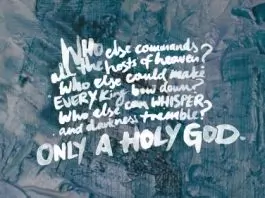 WHO else commands
all the hosts of heaven?
Who else could make
EVERY King bow down?
Who else can WHISPER
and darkness tremble?
ONLY A HOLY GOD.